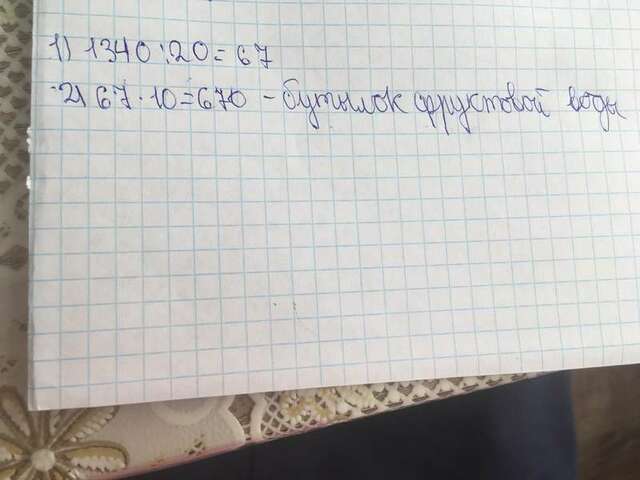 1) 1340:20=67
2) 67·10=670 - бутылок фруктовой воды